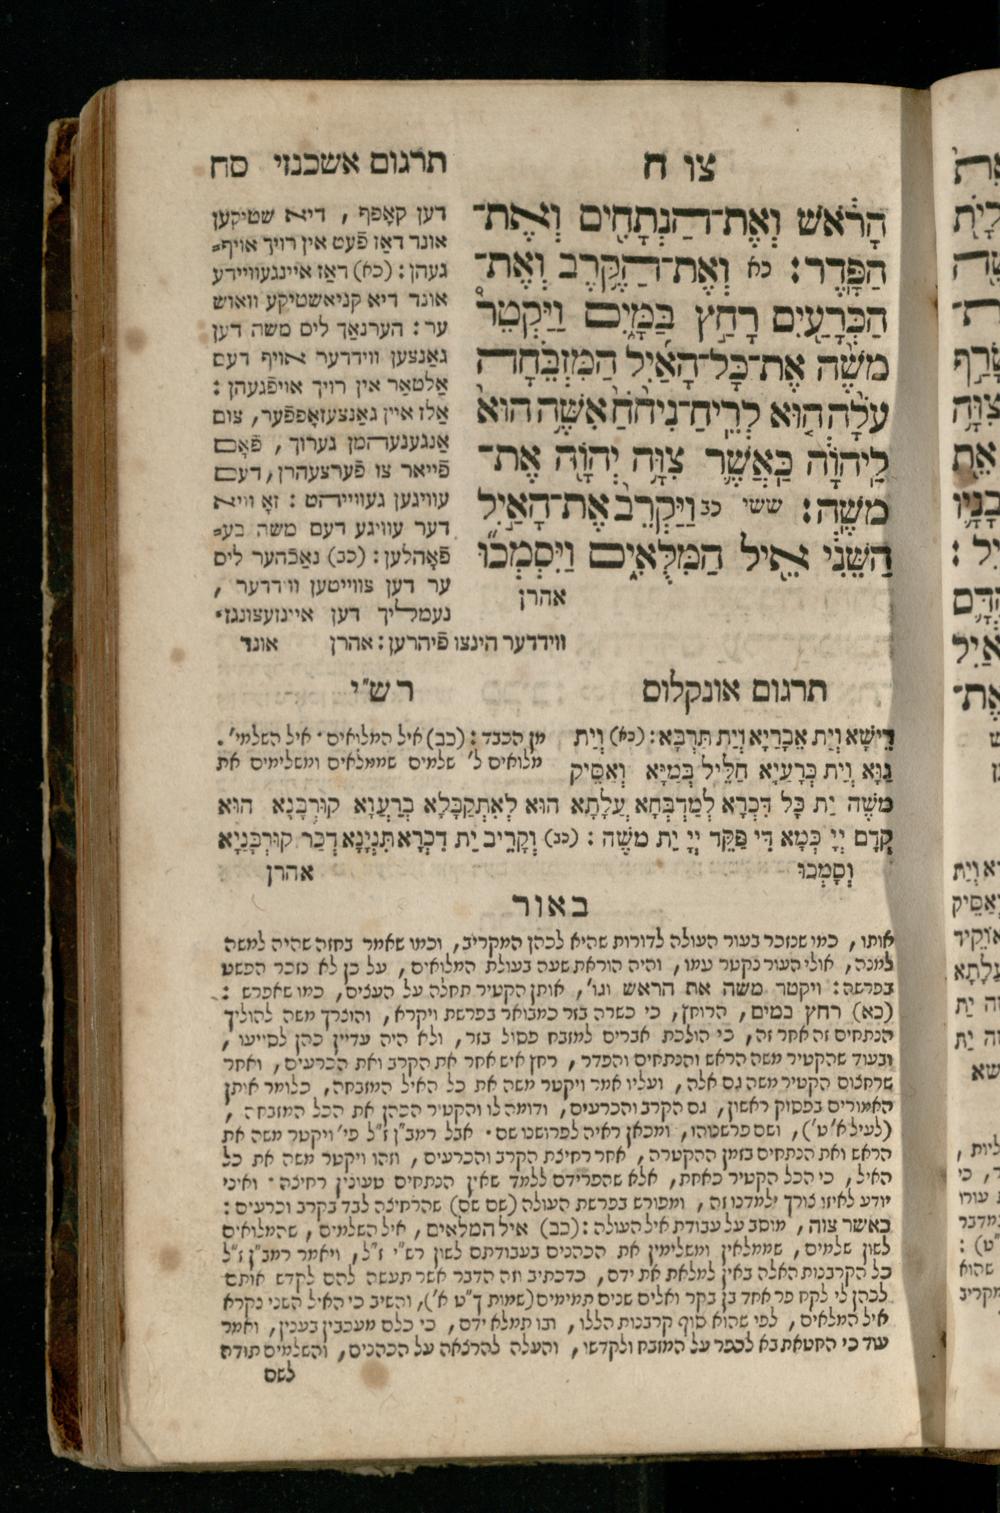 צו ח
תרגום אשכנזי סח
הָרֹ֔אשׁ וְאֶת־הַנְּתָחִ֖ים וְאֶת־
הַפָּֽדֶר׃ כא וְאֶת־הַקֶּ֥רֶב וְאֶת־
הַכְּרָעַ֖יִם רָחַ֣ץ בַּמָּ֑יִם וַיַּקְטֵר֩
מֹשֶׁ֨ה אֶת־כׇּל־הָאַ֜יִל הַמִּזְבֵּ֗חָה
עֹלָ֨ה ה֤וּא לְרֵֽיחַ־נִיחֹ֙חַ֙ אִשֶּׁ֥ה הוּא֙
לַֽיהֹוָ֔ה כַּאֲשֶׁ֛ר צִוָּ֥ה יְהֹוָ֖ה אֶת־
מֹשֶֽׁה׃ ששי כב וַיַּקְרֵב֙ אֶת־הָאַ֣יִל
הַשֵּׁנִ֔י אֵ֖יל הַמִּלֻּאִ֑ים וַֽיִּסְמְכ֞וּ
אהרן
דען קאָפף, דיא שטיקען
אונד דאַז פֿעט אין רויך אויפֿ=
געהן: (כא) דאַז אײנגעווײדע
אונד דיא קניאשטיקע וואוש
ער: הערנאַך ליס משה דען
גאַנצען ווידדער אויף דעם
אַלטאַר אין רויך אויפֿגעהן:
אַלז אײן גאַנצעזאָפפֿער, צום
אַנגענעהמן גערוך, פֿאָם
פֿײאר צו פֿערצעהרן, דעם
עוויגען געווייהט: זאָ וויא
דער עוויגע דעם משה בע=
פֿאָהלען: (כב) נאַכֿהער ליס
ער דען צווייטען ווידדער,
נעמליך דען אײנזעצונגז=
ווידדער הינצו פֿיהרען: אהרן אונד
תרגום אונקלוס
רש"י
רֵישָׁא וְיָת אֵבָרַיָא וְיָת תַּרְבָּא: (כא) וְיָת
גַוָּא וְיָת כְּרָעַיָא חַלֵּיל בְּמַיָא וְאַסֵּיק
משֶׁה יַת כָּל דִּכְרָא לְמַדְבְּחָא עֲלָתָא הוּא לְאִתְקַבָּלָא בְרַעֲוָא קוּרְבָּנָא הוּא
קֳדָם יְיָ כְּמָא דִּי פַקֵּד יְיָ יַת משֶׁה: (כב) וְקָרֵיב יַת דִכְרָא תִּנְיָנָא דְכַר קוּרְבָּנַיָא
וְסָמְכוּ
מן הכבד: (כב) איל המלואים. איל השלמי'.
מלואים ל' שלמים שממלאים ומשלימים את
אהרן
באור
אותו, כמו שנזכר בעור העולה לדורות שהיא לכהן המקריב, וכמו שאמר בחזה שהיה למשה
למנה, אולי העור נקטר עמו, והיה הוראת שעה בעולת המלואים, על כן לא נזכר הפשט
בפרשה: ויקטר משה את הראש וגו', אותן הקטיר תחלה על העצים, כמו שאפרש:
(כא) רחץ במים, הרוחץ, כי כשרה בזר כמבואר בפרשת ויקרא, והוצרך משה להוליך
הנתחים זה אחר זה, כי הולכת אברים למזבח פסול בזר, ולא היה עדיין כהן לסייעו,
ובעוד שהקטיר משה הראש והנתחים והפדר, רחץ איש אחר את הקרב ואת הכרעים, ואחר
שרחצום הקטיר משה גם אלה, ועליו אמר ויקטר משה את כל האיל המזבחה, כלומר אותן
האמורים בפסוק ראשון, גם הקרב והכרעים, ודומה לו והקטיר הכהן את הכל המזבחה,
(לעיל א' ט'), ושם פרשנוהו, ומכאן ראיה לפרושנו שם. אבל רמב"ן ז"ל פי' ויקטר משה את
הראש ואת הנתחים בזמן ההקטרה, אחר רחיצת הקרב והכרעים, וזהו ויקטר משה את כל
האיל, כי הכל הקטיר כאחת, אלא שהפרידם ללמד שאין הנתחים טעונין רחיצה. ואיני
יודע לאיזו צורך ילמדנו זה, ומפורש בפרשת העולה (שם שם) שהרחיצה לבד בקרב וכרעים:
כאשר צוה, מוסב על עבודת איל העולה: (כב) איל המלאים, איל השלמים, שהמלואים
לשון שלמים, שממלאין ומשלימין את הכהנים בעבודתם לשון רש"י ז"ל, ויאמר רמב"ן ז"ל
כל הקרבנות האלה באין למלאת את ידם, כדכתיב וזה הדבר אשר תעשה להם לקדש אותם
לכהן לי לקח פר אחד בן בקר ואלים שנים תמימים (שמות ך"ט א'), והשיב כי האיל השני נקרא
איל המלאים, לפי שהוא סוף קרבנות הללו, ובו תמלא ידם, כי כלם מעכבין בענין, ואמר
עוד כי החטאת בא לכפר על המזבח ולקדשו, והעלה להרצאה על הכהנים, והשלמים תודה
לשם